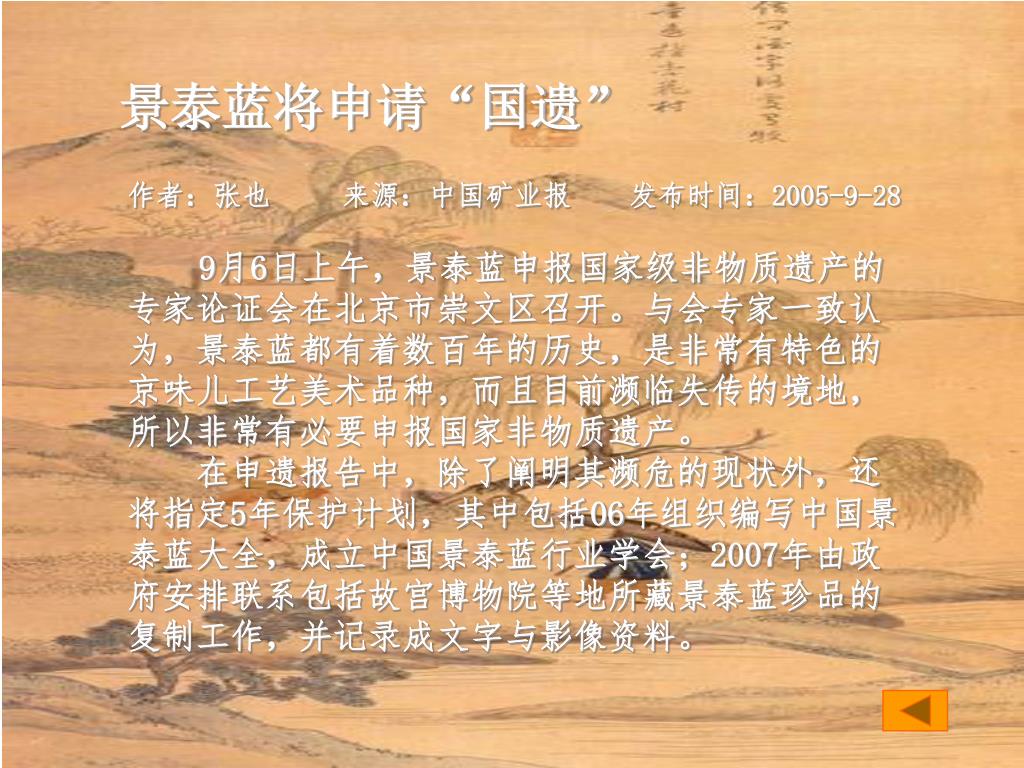 景泰蓝将申请“国遗”
作者：张也 来源：中国矿业报 发布时间：2005-9-28
9月6日上午，景泰蓝申报国家级非物质遗产的
专家论证会在北京市崇文区召开。与会专家一致认
为，景泰蓝都有着数百年的历史，是非常有特色的
京味儿工艺美术品种，而且目前濒临失传的境地，
所以非常有必要申报国家非物质遗产。
在申遗报告中，除了阐明其濒危的现状外，还
将指定5年保护计划，其中包括06年组织编写中国景
泰蓝大全，成立中国景泰蓝行业学会；2007年由政
府安排联系包括故宫博物院等地所藏景泰蓝珍品的
复制工作，并记录成文字与影像资料。